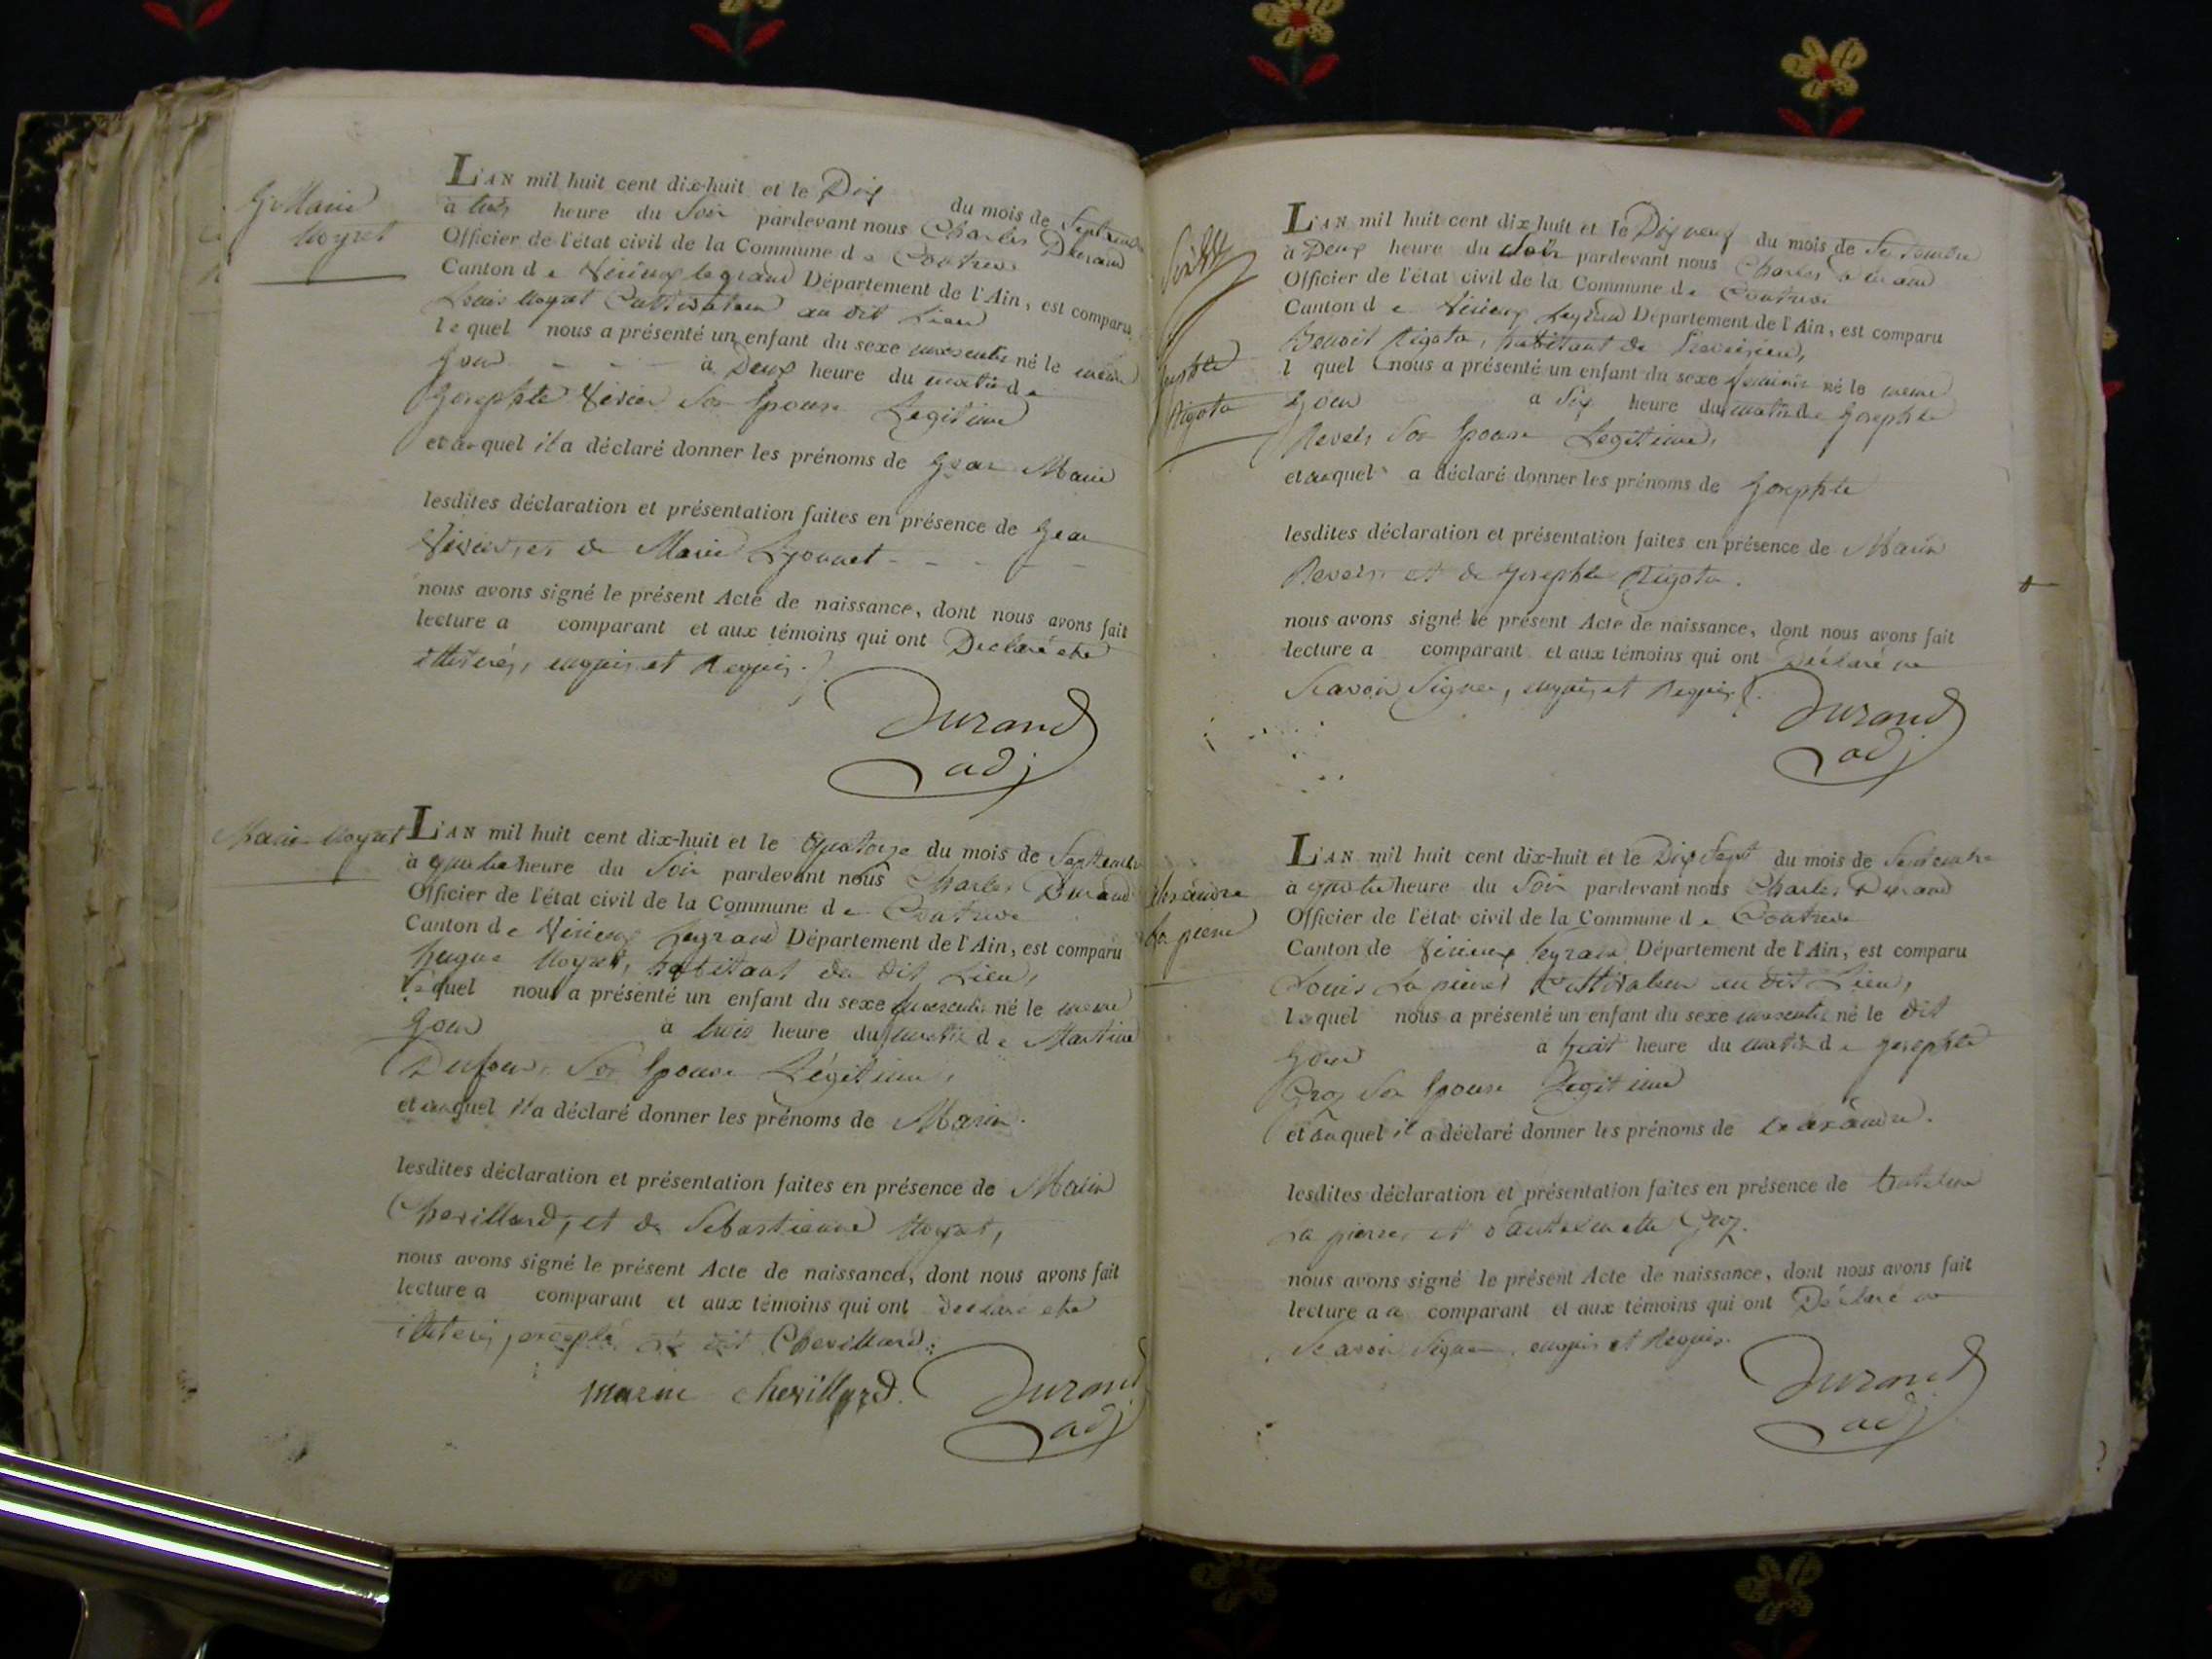 Gn Marie
Noyret
L'AN mil huit cent dix-huit et le Dix du mois de Septembre
à trois heure du Soir pardevant nous Charles Durand
Officier de l'état civil de la Commune de Contrevoz
Canton de Virieux le grand Département de l'Ain, est comparu
Louis Noyret Cultivateur au dit Lieu
lequel nous a présenté un enfant du sexe masculin né le meme
jour à Deux heure du matin de
Josephte Vivier Son Epouse Legitime
et auquel il a déclaré donner les prénoms de Jean Marie
lesdites déclaration et présentation faites en présence de Jean
Vivier, et de Marie Lyonnet
nous avons signé le présent Acte de naissance, dont nous avons fait
lecture a comparant et aux témoins qui ont Declaré etre
illiterés, enquis et Requis.
Durand
adj
Marin Noyret
L'AN mil huit cent dix-huit et le quatorze du mois de Septembre
à quatre heure du Soir pardevant nous Charles Durand
Officier de l'état civil de la Commune de Contrevoz
Canton de Virieux Legrand Département de l'Ain, est comparu
hugue Noyret, habitant du dit Lieu,
lequel nous a présenté un enfant du sexe masculin né le meme
jour à trois heure du matin de Martine
Dufour, Son Epouse Légitime,
et auquel il a déclaré donner les prénoms de Marin.
lesdites déclaration et présentation faites en présence de Marin
Chevillard, et de Sebastienne Noyret,
nous avons signé le présent Acte de naissance, dont nous avons fait
lecture a comparant et aux témoins qui ont declaré etre
illiterés, excepté le dit Chevillard.
marin chevillard. Durand
adj
Josephte
Rigota
L'AN mil huit cent dix-huit et le Dix neuf du mois de Septembre
à Deux heure du Soir pardevant nous Charles Durand
Officier de l'état civil de la Commune de Contrevoz
Canton de Virieux Legrand Département de l'Ain, est comparu
Benoit Rigota, habitant de
l quel nous a présenté un enfant du sexe feminin né le meme
jour à Six heure du matin de Josephte
Revel, Son Epouse Legitime,
et auquel a déclaré donner les prénoms de Josephte
lesdites déclaration et présentation faites en présence de Marin
Revel, et de Josephte Rigota.
nous avons signé le présent Acte de naissance, dont nous avons fait
lecture a comparant et aux témoins qui ont Déclaré ne
Scavoir Signer, enquis et Requis.
Durand
adj
La pierre
L'AN mil huit cent dix-huit et le Dix Sept du mois de Septembre
à quatre heure du Soir pardevant nous Charles Durand
Officier de l'état civil de la Commune de Contrevoz
Canton de Virieux legrand Département de l'Ain, est comparu
Louis La pierre Cultivateur au dit Lieu,
lequel nous a présenté un enfant du sexe masculin né le dit
jour à huit heure du matin de josephte
Groz Son Epouse Legitime
et auquel il a déclaré donner les prénoms de
lesdites déclaration et présentation faites en présence de Antelme
La pierre, et d'antelmette Groz.
nous avons signé le présent Acte de naissance, dont nous avons fait
lecture a a comparant et aux témoins qui ont Déclaré ne
Scavoir Signer, enquis et Requis.
Durand
adj